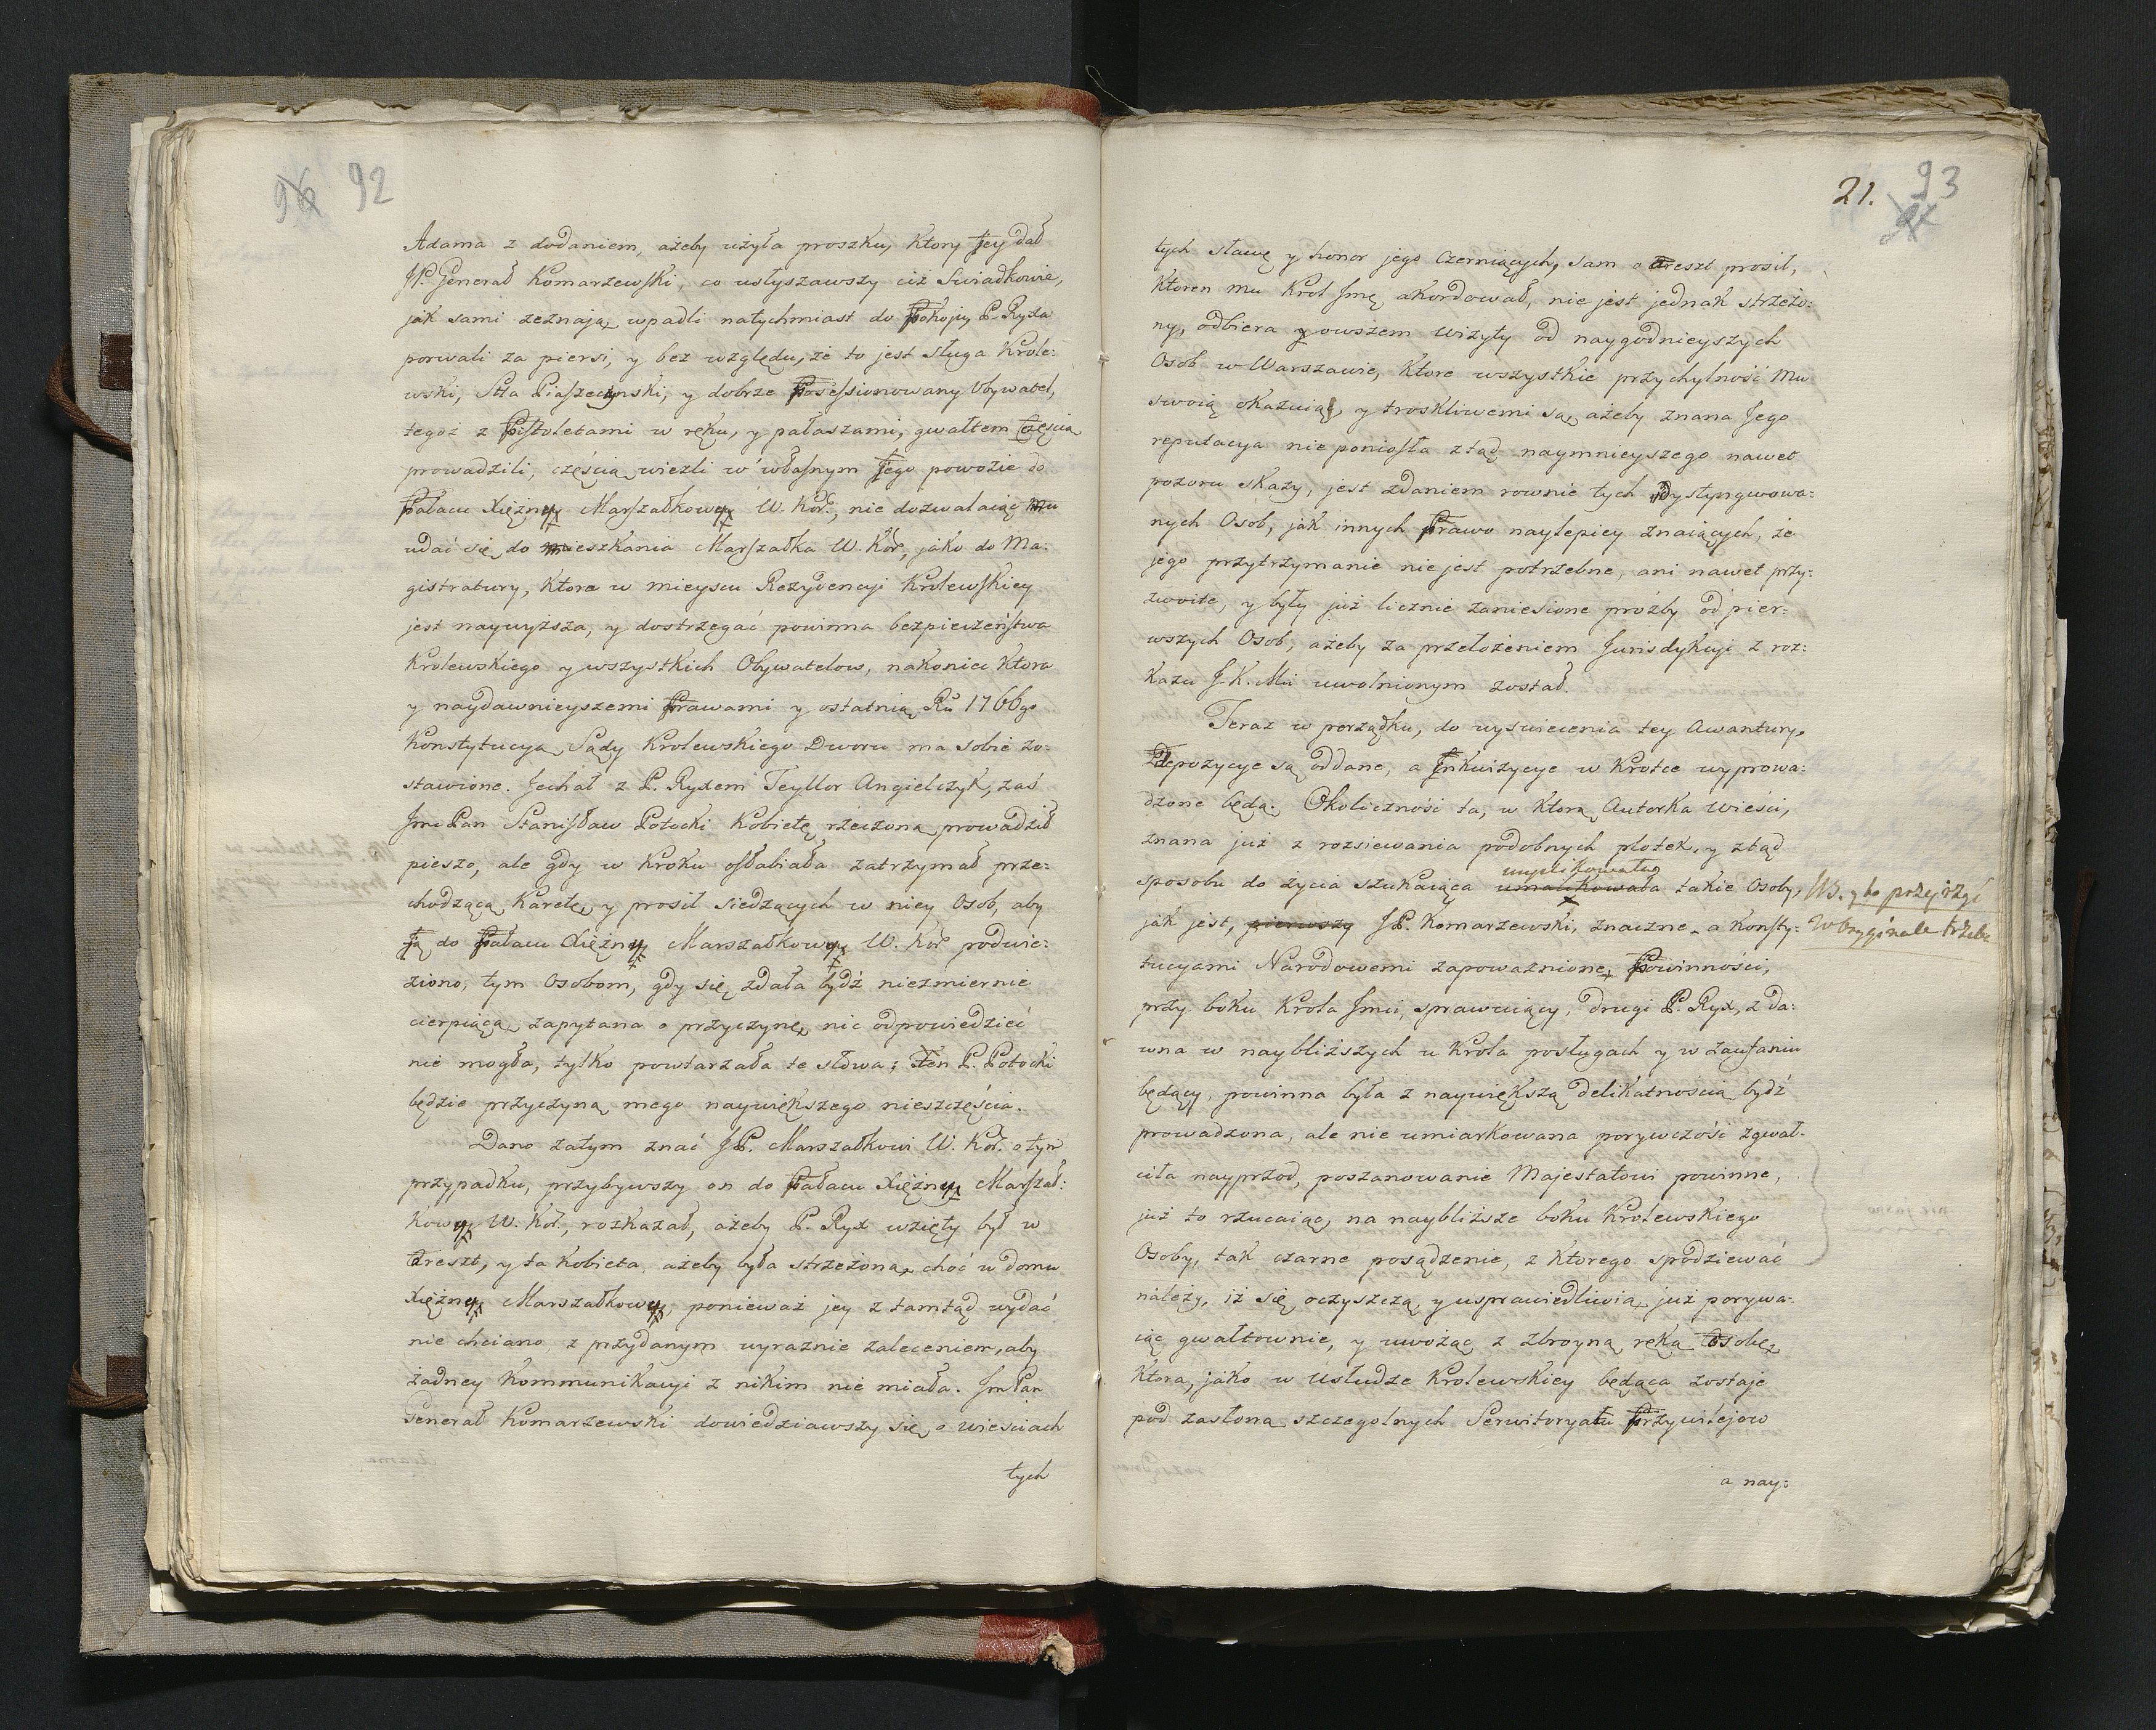 96 92
Adama z dodaniem, ażeby użyła proszku, ktory Jey dał
JP. Generał Komarzewski, co usłyszawszy ciż Swiadkowie,
jak sami zeznają, wpadli natychmiast do Pokoju, P. Ryxa
porwali za piersi, y bez względu, że to jest sługa Krole:
wski, Stta Piaseczynski, y dobrze Possessionowany Obywatel,
tegoż z Pistoletami w ręku, y pałaszami, gwałtem częscią
prowadzili, częścią wiezli w własnym Jego powozie do
Pałacu Xiężny Marszałkowy W. Kor., nie dozwalaiąc mu
udać się do mieszkania Marszałka W. Kor, jako do Ma:
gistratury, ktora w mieyscu Rezydencyi Krolewskiey
jest naywyższa, y dostrzegać powinna bezpieczeństwa
Krolewskiego y wszystkich Obywatelow, nakoniec ktora
y naydawnieyszemi Prawami y ostatnią Ru 1766go
Konstytucyą Sądy Krolewskiego Dworu ma sobie zo:
stawione. Jechał z P. Ryxem Teyllor Angielczyk, zaś
Jmc Pan Stanisław Potocki kobietę rzeczoną prowadził
pieszo, ale gdy w kroku osłabiała zatrzymał prze:
chodzącą Karetę, y prosił siedzących w niey Osob, aby
Ją do Pałacu Xiężny Marszałkowy W. Kor podwie:
ziono, tym Osobom, gdy się zdała bydź niezmiernie
cierpiąca, zapytana o przyczynę, nic odpowiedzieć
nie mogła, tylko powtarzała te słowa; Ten P. Potocki
będzie przyczyną mego naywiększego nieszczęścia.
Dano zatym znać JP. Marszałkowi W. Kor. o tym
przypadku, przybywszy on do Pałacu Xiężny Marszał:
kowy W. Kor., rozkazał, ażeby P. Ryx wzięty był w
Areszt, y ta kobieta, ażeby była strzeżona, choć w domu
Xiężny Marszałkowy, ponieważ jey z tamtąd wydać
nie chciano, z przydanym wyraznie zaleceniem, aby
żadney Kommunikacyi z nikim nie miała. Jm Pan
Generał Komarzewski dowiedziawszy się o wiesciach
tych
21. 93
tych sławę y honor jego czerniących, sam o areszt prosił,
ktoren mu Krol Jmę akordował, nie jest jednak strzeżo:
ny, odbiera y owszem wizyty od naygodnieyszych
Osob w Warszawie, ktore wszystkie przychylność mu
swoią okazuią, y troskliwemi są, ażeby znana Jego
reputacya nie poniosła ztąd naymnieyszego nawet
pozoru skazy, jest zdaniem rownie tych dystyngwowa:
nych Osob, jak innych Prawo naylepiey znaiących, że
jego przytrzymanie nie jest potrzebne, ani nawet przy:
zwoite, y były już licznie zaniesione prozby od pier:
wszych Osob, ażeby za przełożeniem Jurisdykcyi z roz:
kazu J.K.Mci uwolnionym został.
Teraz w porządku, do wyswiecenia tey Awantury,
Depozycye są oddane, a Inkwizycye w krotce wyprowa:
dzone będą. Okoliczności ta, w ktorą Autorka Wieści,
znana już z rozsiewania podobnych plotek, y ztąd
implikowała
sposobu do życia szukaiąca umalikowała takie Osoby, NB. y to przeyrzyć
jak jest, pierwszy JP. Komarzewski, znaczne, a Konsty: w Oryginale trzeba
tucyami Narodowemi zapoważnione, Powinności,
przy boku Krola Jmci, sprawuiący, drugi P. Ryx, z da:
wna w naybliższych u Krola posługach y w zaufaniu
będący, powinna była z naywiększą delikatnością bydź
prowadzona, ale nie umiarkowana porywczość zgwał:
ciła nayprzod, poszanowanie Majestatowi powinne,
już to rzucaiąc, na naybliższe boku Krolewskiego
nie jasno
Osoby, tak czarne posądzenie, z ktorego spodziewać
należy, iż się oczyszczą, y usprawiedliwią, już porywa:
iąc gwałtownie, y uwożąc z zbroyną ręką Osobę,
ktora, jako w Usłudze Krolewskiey będąca zostaje
pod zasłoną szczegolnych Serwitoryatu Przywilejow
a nay: